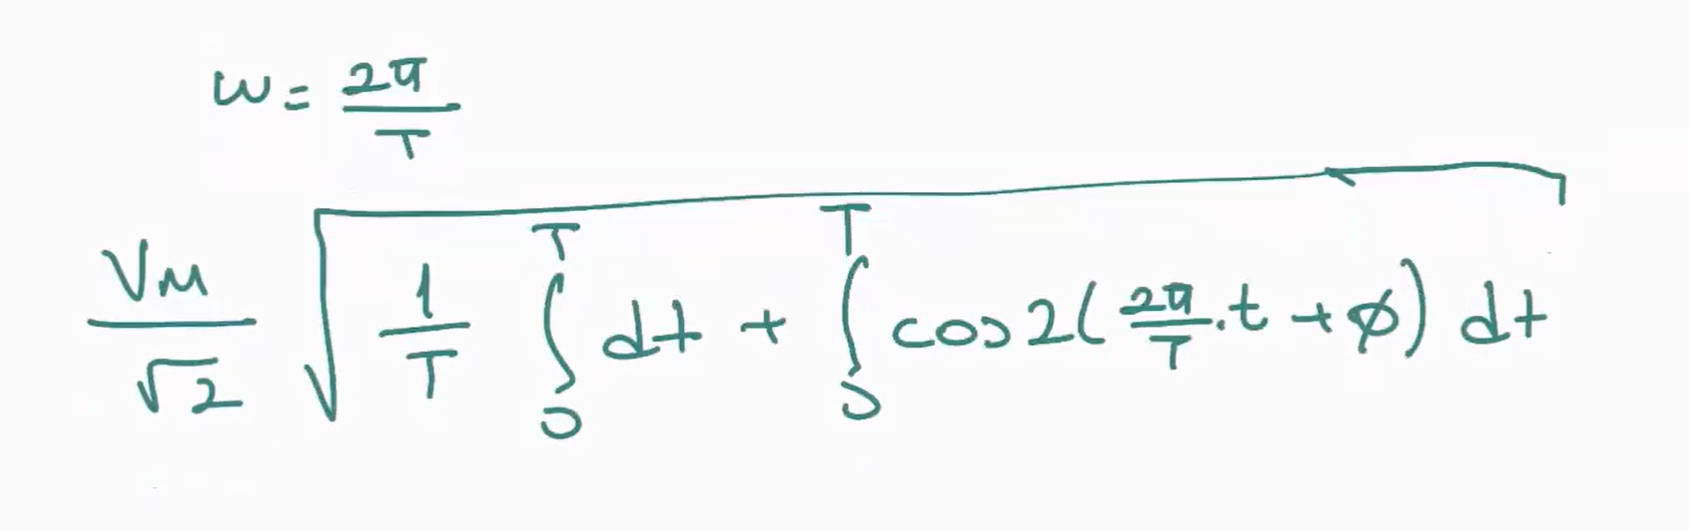 ω = 2π/T
VM/√2 √(1/T ∫₀ᵀ dt + ∫₀ᵀ cos2(2π/T.t + ϕ) dt)